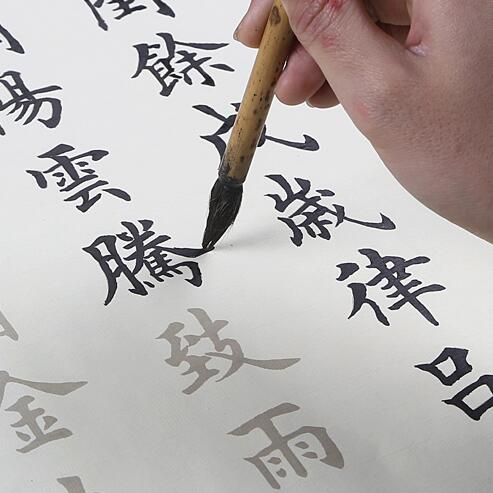 閏餘成歲律呂
陽雲騰致雨
金